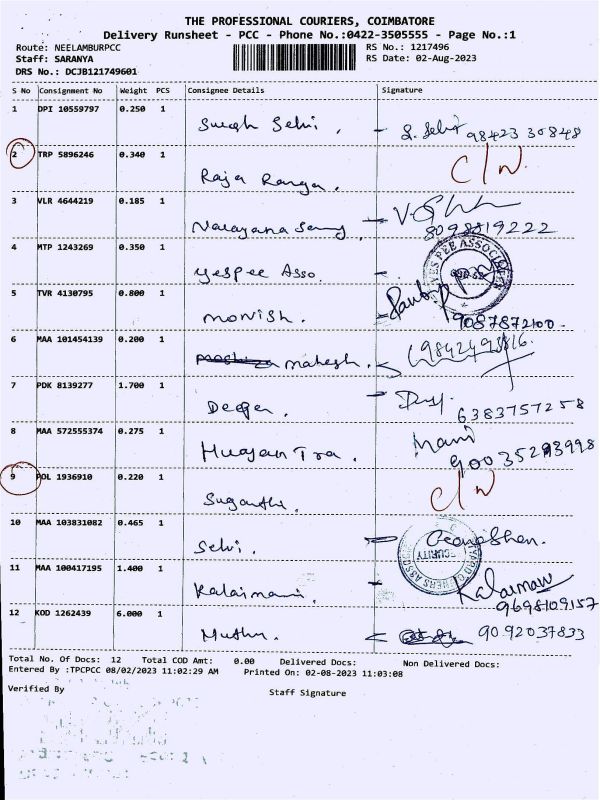 THE PROFESSIONAL COURIERS, COIMBATORE
Delivery Runsheet - PCC - Phone No.:0422-3505555 - Page No.:1
Route: NEELAMBURPCC RS No.: 1217496
Staff: SARANYA RS Date: 02-Aug-2023
DRS No.: DCJB121749601
S No Consignment No Weight PCS Consignee Details Signature
1 DPI 10559797 0.250 1
Suresh Selvi. - S. Selvi 98423 30848
2 TRP 5896246 0.340 1
Raja Ranga. C/N
3 VLR 4644219 0.185 1
Narayana Samy 8098819222
4 MTP 1243269 0.350 1
Yespee Asso. YES PEE ASSOCIATES
5 TVR 4130795 0.800 1
monish. 9087872100.
6 MAA 101454139 0.200 1
mahesh.
7 PDK 8139277 1.700 1
Deepa. 6383757258
8 MAA 572555374 0.275 1
Mani
90035293998
9 POL 1936910 0.220 1
Suganthi. C/N
10 MAA 103831082 0.465 1
Selvi. SECURITY
11 MAA 100417195 1.400 1
Kalaimani. Kalaimani
9698109157
12 KOD 1262439 6.000 1
Muthu. 9092037833
Total No. Of Docs: 12 Total COD Amt: 0.00 Delivered Docs: Non Delivered Docs:
Entered By :TPCPCC 08/02/2023 11:02:29 AM Printed On: 02-08-2023 11:03:08
Verified By Staff Signature